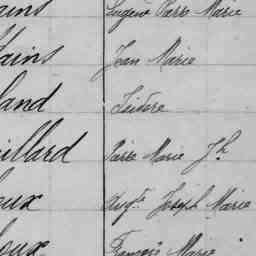 ains Eugène Marie
Hains Jean Marie
land Isidore
illard Marie Jh
oux Augte Joseph Marie
oux François Marie